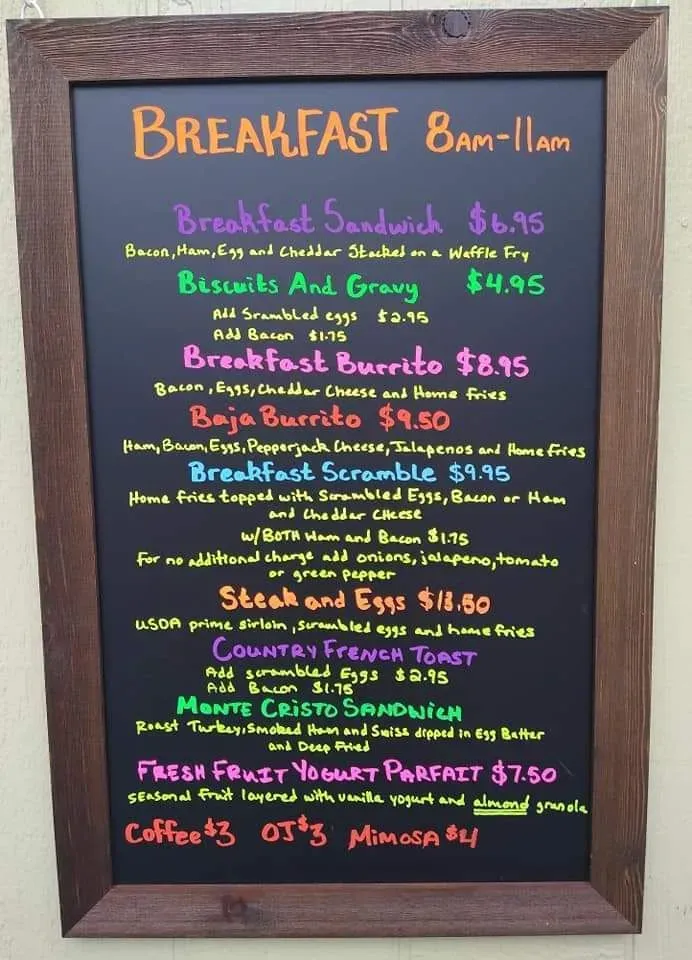 BREAKFAST 8AM-11AM
Breakfast Sandwich $6.95
Bacon, Ham, Egg and Cheddar Stacked on a Waffle Fry
Biscuits And Gravy $4.95
Add Srambled eggs $2.95
Add Bacon $1.75
Breakfast Burrito $8.95
Bacon, Eggs, Cheddar Cheese and Home fries
Baja Burrito $9.50
Ham, Bacon, Eggs, Pepperjack Cheese, Jalapenos and Home Fries
Breakfast Scramble $9.95
Home fries topped with Scrambled Eggs, Bacon or Ham
and Cheddar Cheese
w/BOTH Ham and Bacon $1.75
For no additional charge add onions, jalapeno, tomato
or green pepper
Steak and Eggs $13.50
USDA prime sirloin, scrambled eggs and home fries
COUNTRY FRENCH TOAST
Add scrambled Eggs $2.95
Add Bacon $1.75
MONTE CRISTO SANDWICH
Roast Turkey, Smoked Ham and Swiss dipped in Egg Batter
and Deep Fried
FRESH FRUIT YOGURT PARFAIT $7.50
Seasonal fruit layered with vanilla yogurt and almond granola
Coffee $3 OJ $3 MIMOSA $4